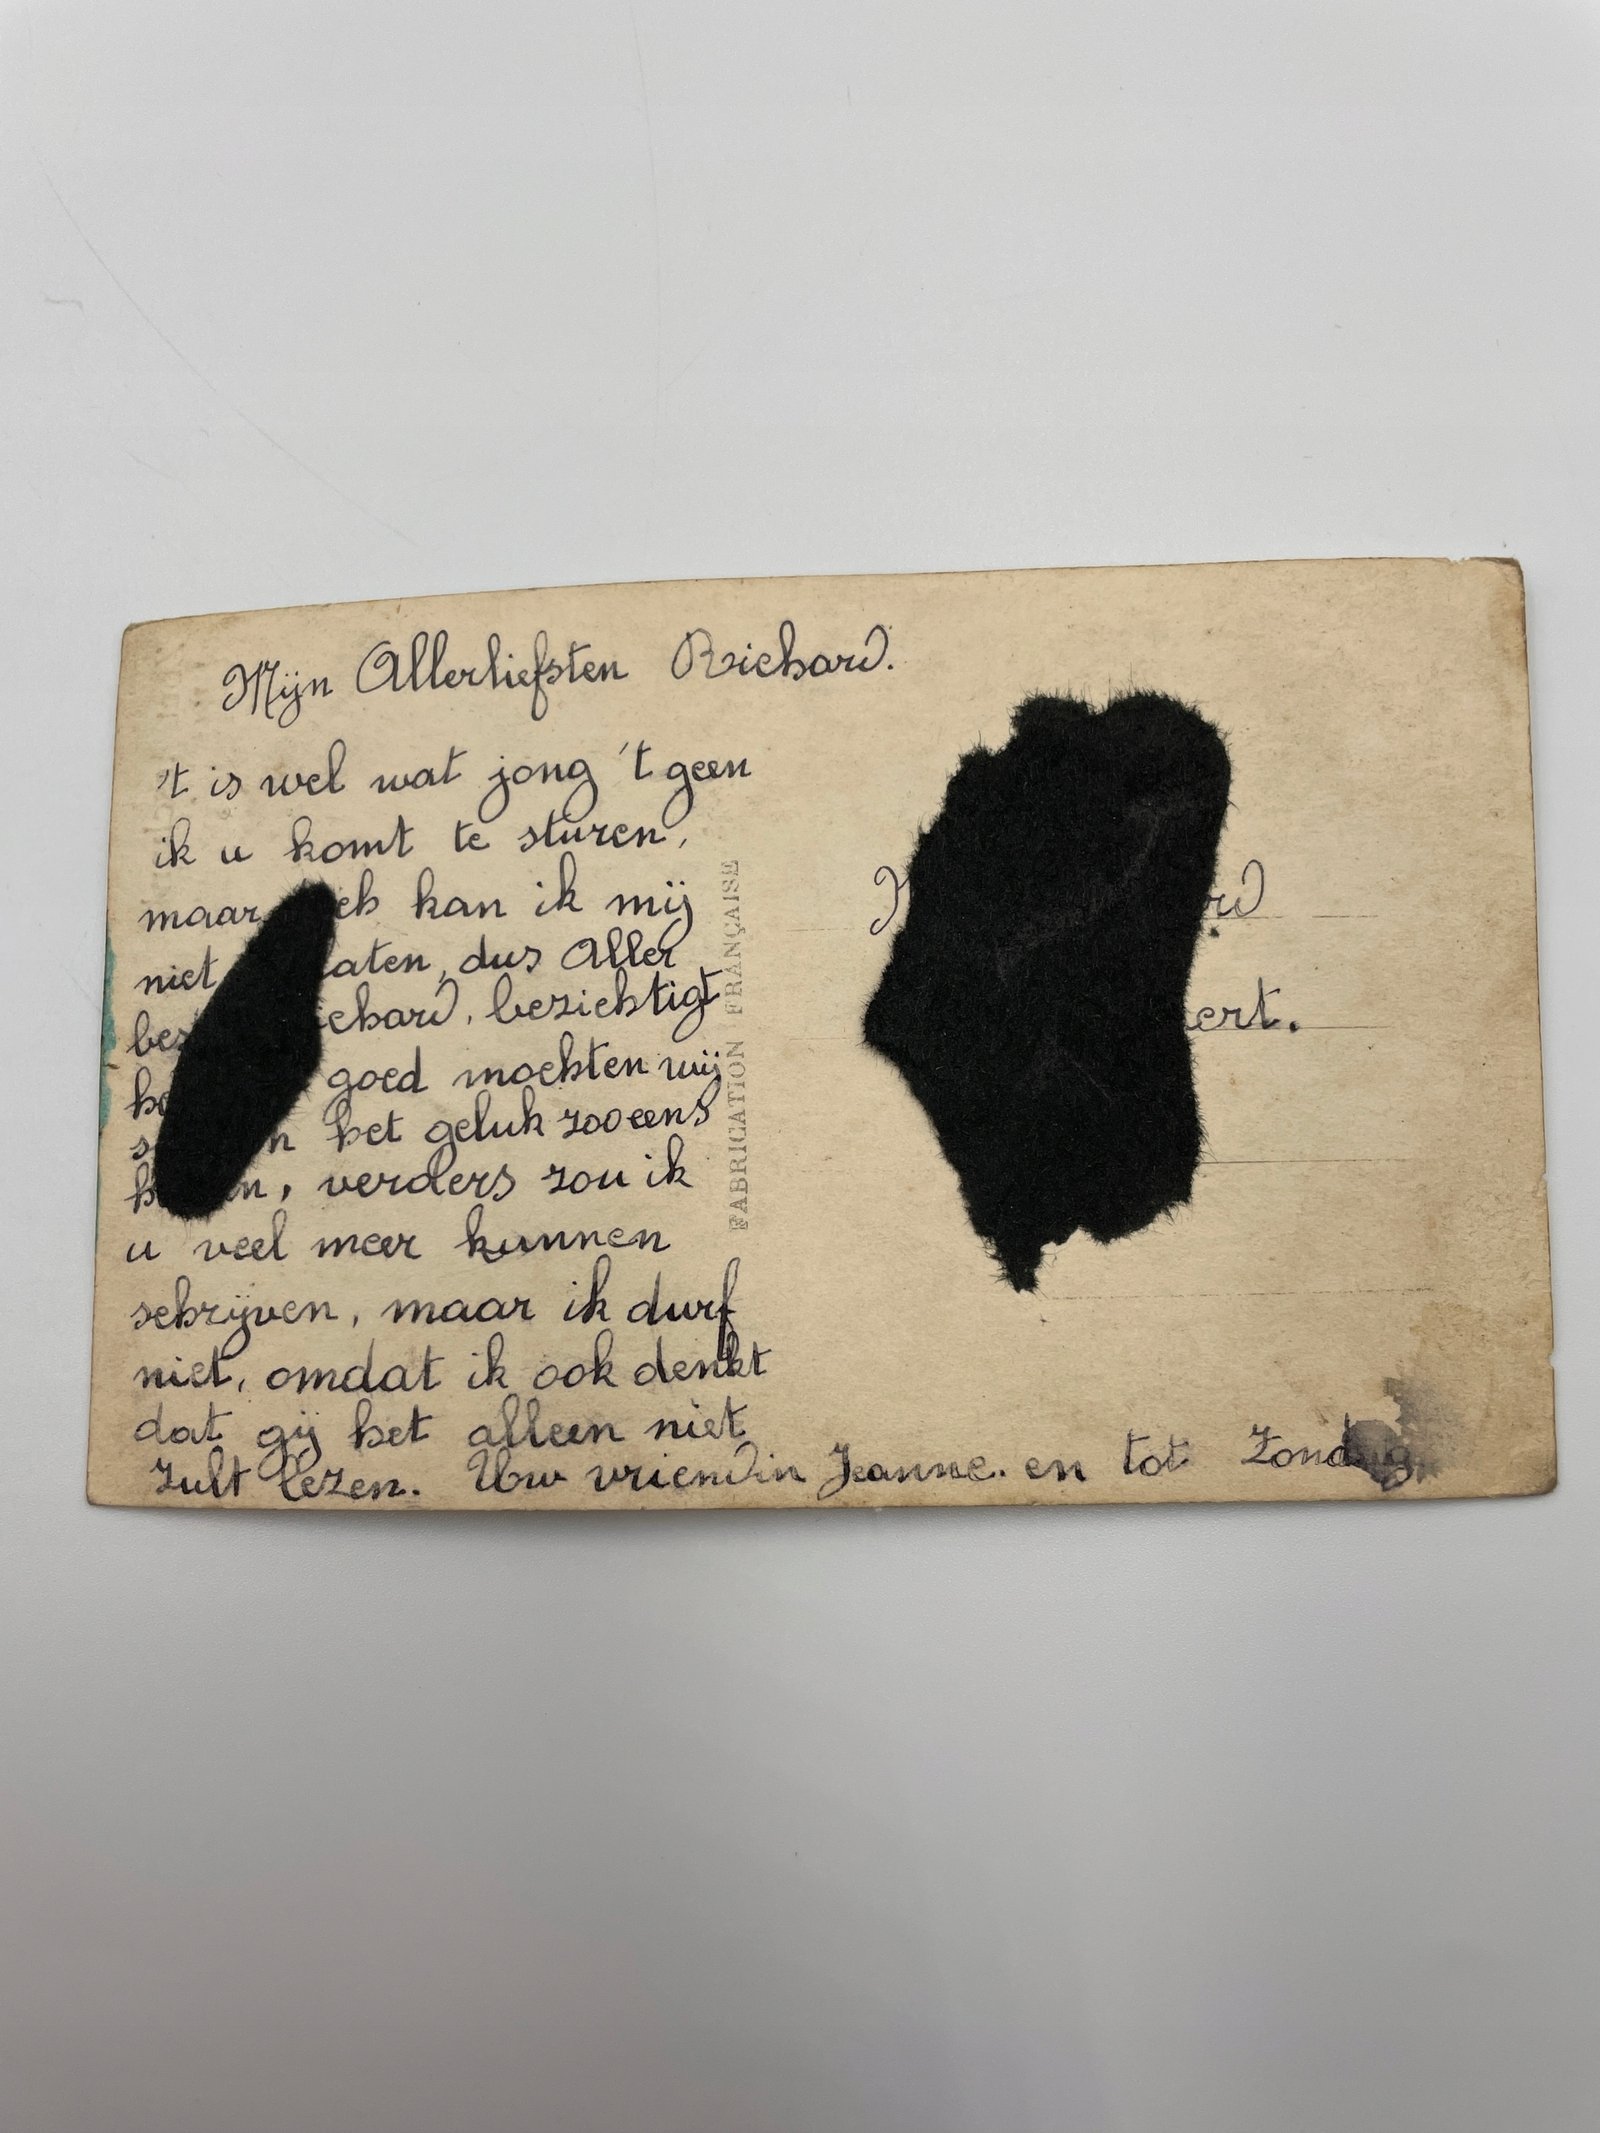 Mijn Allerliefsten Richard.
't is wel wat jong 't geen
ik u komt te sturen,
maar kan ik mij
niet dus Aller
bezichtigt
goed mochten wij
het geluk zoo eens
verders zou ik
u veel meer kunnen
schrijven, maar ik durf
niet, omdat ik ook denkt
dat gij het alleen niet
zult lezen. Uw vriendin Jeanne. en tot Zondag
FABRICATION FRANÇAISE